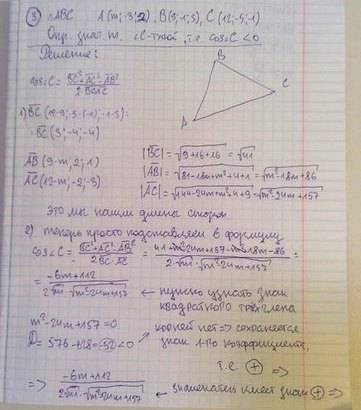 ③ △ABC A(m;-3;2), B(9;-1;3), C(12;-5;-1)
Опр. знач. m. ∠C-тупой, т.е. cos∠C < 0
Решение:
B
C
A
cos∠C = (BC² + AC² - AB²) / (2·BC·AC)
1) BC (12-9; -5-(-1); -1-3):
BC (3; -4; -4)
AB (9-m; 2; 1)
AC (12-m; -2; -3)
|BC| = √(9+16+16) = √41
|AB| = √(81-18m+m²+4+1) = √(m²-18m+86)
|AC| = √(144-24m+m²+4+9) = √(m²-24m+157)
это мы нашли длины сторон
2) теперь просто подставляем в формулу
cos∠C = (BC² + AC² - AB²) / (2·BC·AC) = (41+m²-24m+157-m²+18m-86) / (2·√41·√(m²-24m+157)) =
= (-6m+112) / (2√41·√(m²-24m+157)) ← нужно узнать знак
квадратного трёхчлена
m²-24m+157=0
D = 576-628 = -52 < 0
корней нет => сохраняется
знак 1-го коэффициента,
т.е. ⊕ =>
=> (-6m+112) / (2√41·√(m²-24m+157)) ← знаменатель имеет знак ⊕ =>